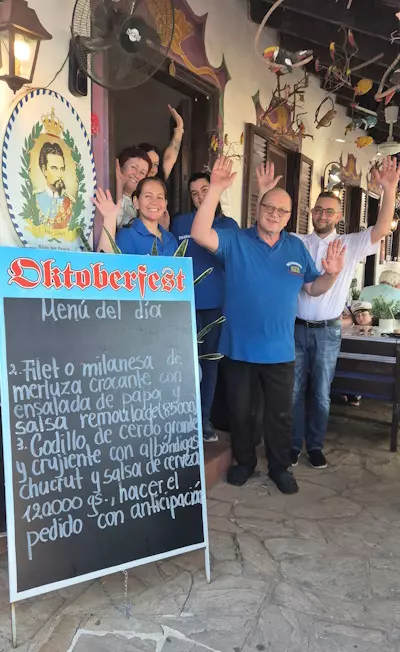 Oktoberfest
Menú del día
2. Filet o milanesa de
merluza crocante con
ensalada de papa y
salsa remoulade(85000)
3. Codillo de cerdo grande
y crujiente con albóndigas
chucrut y salsa de cerveza
120000 gs., hacer el
pedido con anticipación